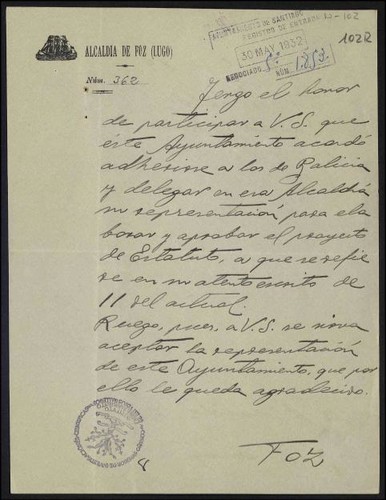 102
102R
ALCALDÍA DE FOZ (LUGO)
AYUNTAMIENTO DE SANTIAGO
REGISTRO DE ENTRADA
30 MAY. 1932
NEGOCIADO NÚM.
Núm. 362
Tengo el honor
de participar a V.S. que
éste Ayuntamiento acordó
adherirse a los de Galicia
y delegar en esa Alcaldía
su representación para ela
borar y aprobar el proyecto
de Estatuto, a que se refie
re en su atento escrito de
11 del actual.
Ruego, pues, a V.S. se sirva
aceptar la representación
de este Ayuntamiento, que por
ello le queda agradecido.
Foz